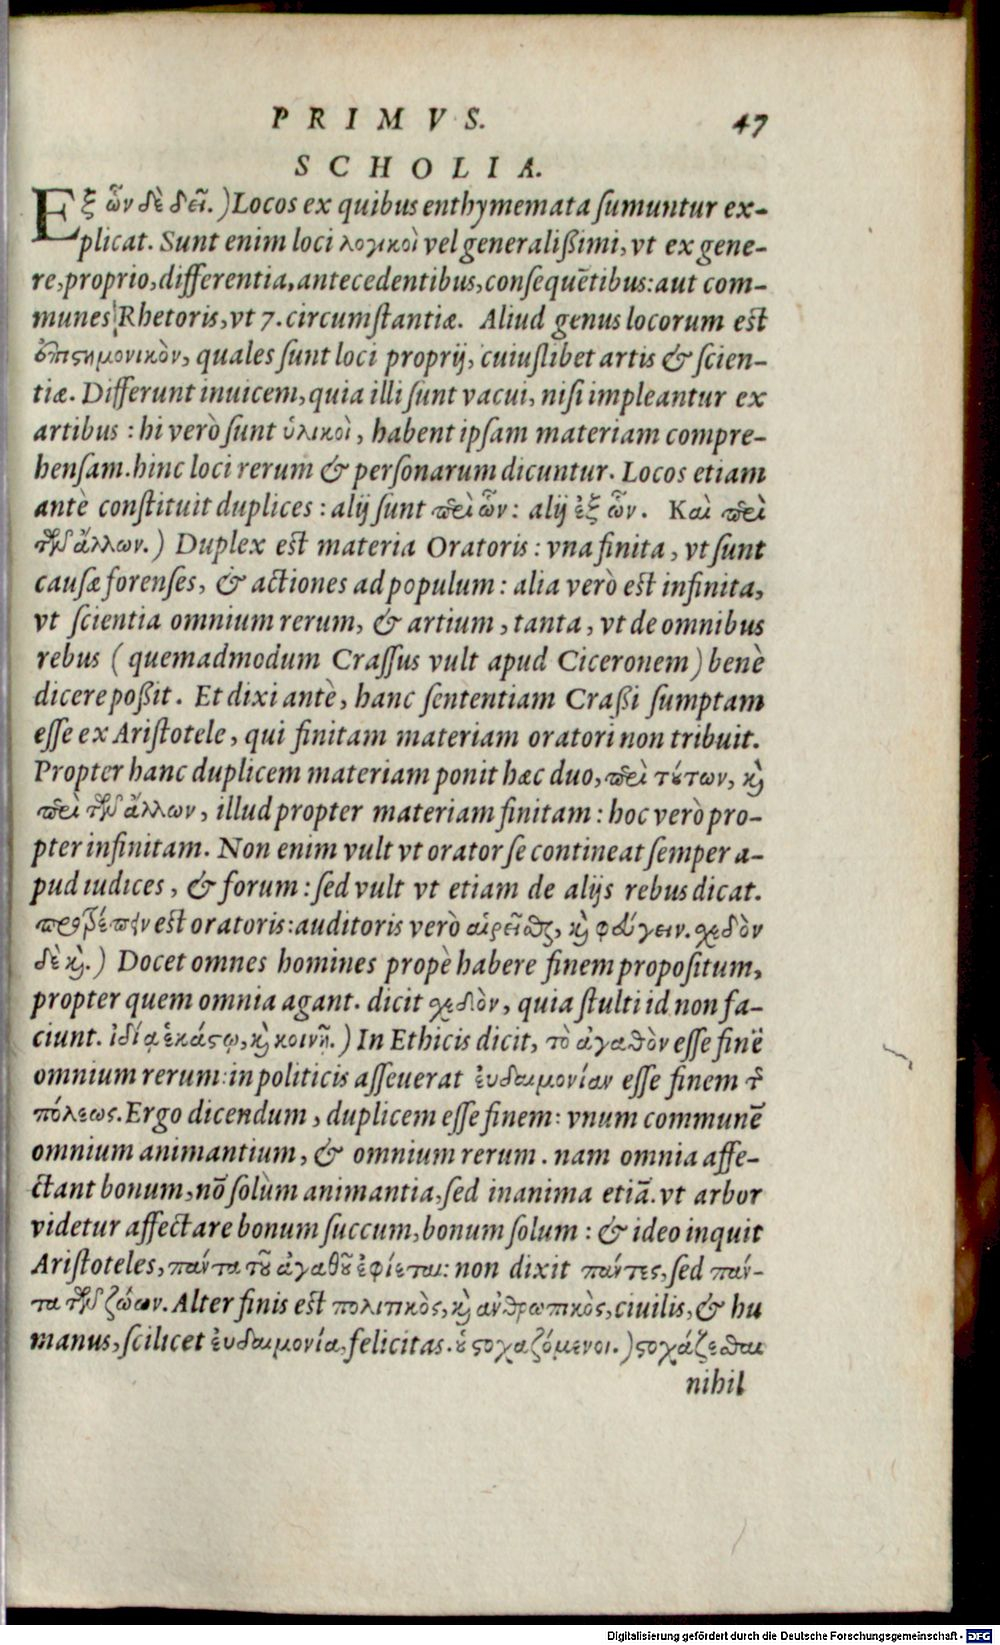 PRIMVS. 47
SCHOLIA.
Εξ ὧν δὲ δεῖ.) Locos ex quibus enthymemata sumuntur ex-
plicat. Sunt enim loci λογικοὶ vel generalißimi, vt ex gene-
re, proprio, differentia, antecedentibus, consequētibus: aut com-
munes Rhetoris, vt 7. circumstantiæ. Aliud genus locorum est
ἐπιστημονικὸν, quales sunt loci proprij, cuiuslibet artis & scien-
tiæ. Differunt inuicem, quia illi sunt vacui, nisi impleantur ex
artibus : hi verò sunt ὑλικοὶ, habent ipsam materiam compre-
hensam. hinc loci rerum & personarum dicuntur. Locos etiam
antè constituit duplices : alij sunt περὶ ὧν: alij ἐξ ὧν. Καὶ περὶ
τῶν ἄλλων.) Duplex est materia Oratoris : vna finita, vt sunt
causæ forenses, & actiones ad populum : alia verò est infinita,
vt scientia omnium rerum, & artium, tanta, vt de omnibus
rebus ( quemadmodum Crassus vult apud Ciceronem) benè
dicere poßit. Et dixi antè, hanc sententiam Craßi sumptam
esse ex Aristotele, qui finitam materiam oratori non tribuit.
Propter hanc duplicem materiam ponit hæc duo, περὶ τούτων, καὶ
περὶ τῶν ἄλλων, illud propter materiam finitam : hoc verò pro-
pter infinitam. Non enim vult vt orator se contineat semper a-
pud iudices, & forum : sed vult vt etiam de alijs rebus dicat.
προτρέπειν est oratoris: auditoris verò αἱρεῖσθαι, καὶ φεύγειν. σχεδὸν
δὲ καὶ.) Docet omnes homines propè habere finem propositum,
propter quem omnia agant. dicit σχεδὸν, quia stulti id non fa-
ciunt. ἰδίᾳ ἑκάστῳ, καὶ κοινῇ.) In Ethicis dicit, τὸ ἀγαθὸν esse finē
omnium rerum: in politicis asseuerat ἐυδαιμονίαν esse finem τῆς
πόλεως. Ergo dicendum, duplicem esse finem: vnum communē
omnium animantium, & omnium rerum. nam omnia affe-
ctant bonum, nō solùm animantia, sed inanima etiā. vt arbor
videtur affectare bonum succum, bonum solum : & ideo inquit
Aristoteles, πάντα τοῦ ἀγαθοῦ ἐφίεται: non dixit πάντες, sed πάν-
τα τῶν ζώων. Alter finis est πολιτικὸς, καὶ ἀνθρωπικὸς, ciuilis, & hu
manus, scilicet ἐυδαιμονία, felicitas. οὗ στοχαζόμενοι.) στοχάζεσθαι
nihil
Digitalisierung gefördert durch die Deutsche Forschungsgemeinschaft - DFG